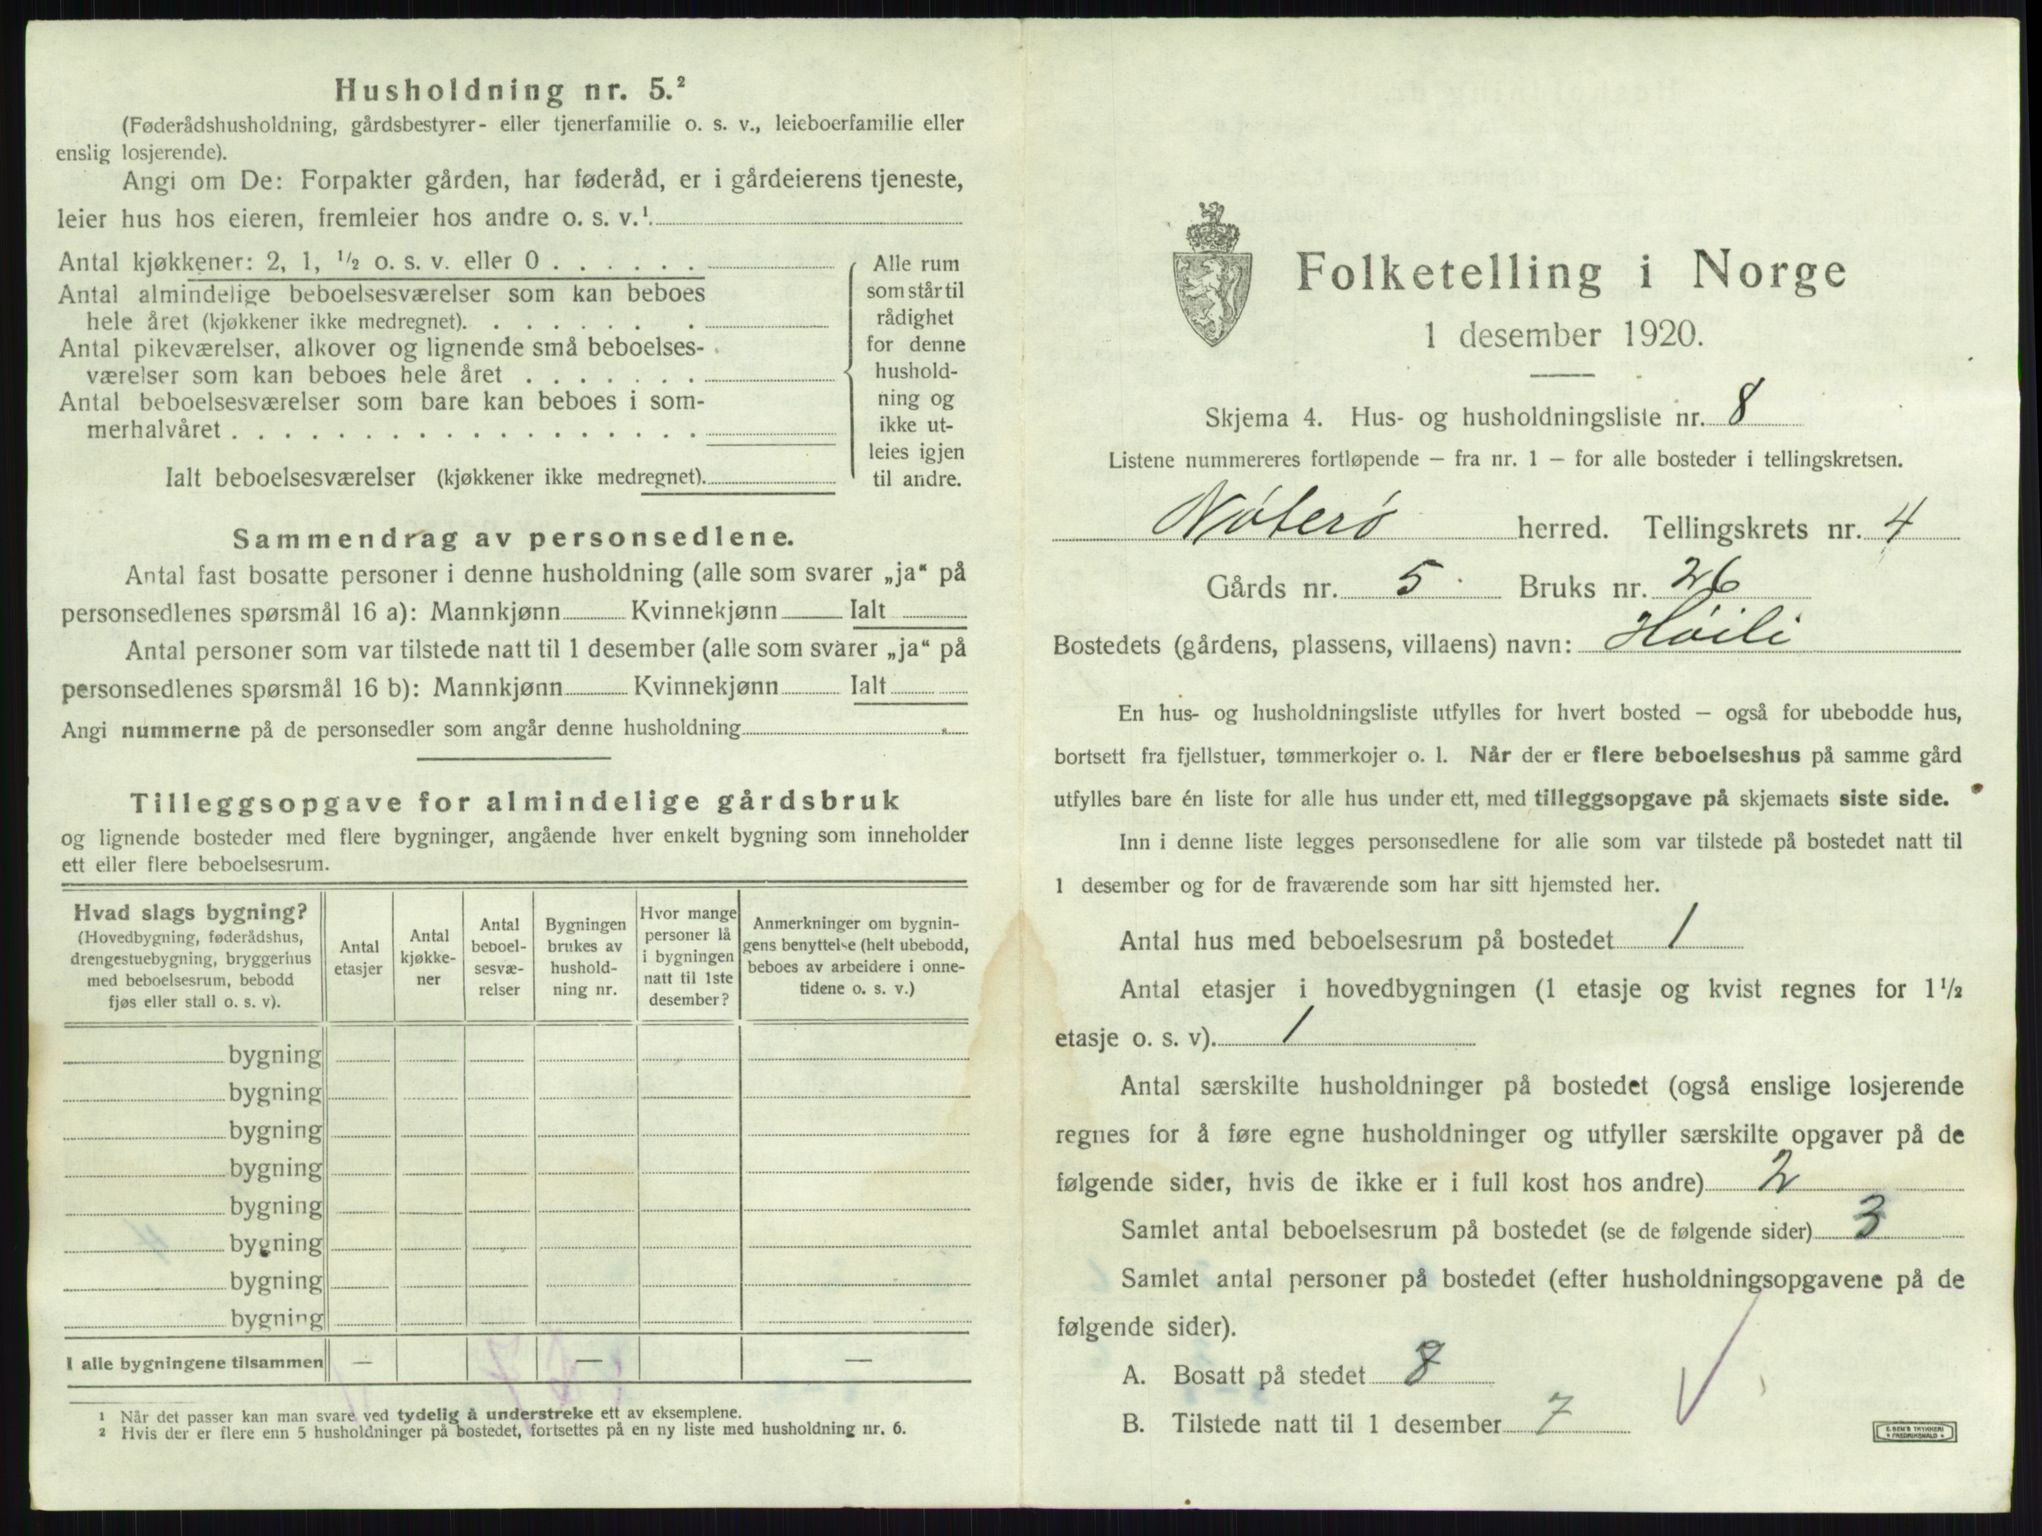 Husholdning nr. 5.²
(Føderådshusholdning, gårdsbestyrer- eller tjenerfamilie o. s. v., leieboerfamilie eller
enslig losjerende).
Angi om De: Forpakter gården, har føderåd, er i gårdeierens tjeneste,
leier hus hos eieren, fremleier hos andre o. s. v.¹
Antal kjøkkener: 2, 1, ½ o. s. v. eller 0 . . . . . .
Antal almindelige beboelsesværelser som kan beboes
hele året (kjøkkener ikke medregnet). . . . . . . . .
Antal pikeværelser, alkover og lignende små beboelses-
værelser som kan beboes hele året . . . . . . .
Antal beboelsesværelser som bare kan beboes i som-
merhalvåret . . . . . . . . . . . . . . . . . .
Ialt beboelsesværelser (kjøkkener ikke medregnet).
Alle rum
som står til
rådighet
for denne
hushold-
ning og
ikke ut-
leies igjen
til andre.
Sammendrag av personsedlene.
Antal fast bosatte personer i denne husholdning (alle som svarer „ja“ på
personsedlenes spørsmål 16 a): Mannkjønn Kvinnekjønn Ialt
Antal personer som var tilstede natt til 1 desember (alle som svarer „ja“ på
personsedlenes spørsmål 16 b): Mannkjønn Kvinnekjønn Ialt
Angi nummerne på de personsedler som angår denne husholdning
Tilleggsopgave for almindelige gårdsbruk
og lignende bosteder med flere bygninger, angående hver enkelt bygning som inneholder
ett eller flere beboelsesrum.
Hvad slags bygning?
(Hovedbygning, føderådshus,
drengestuebygning, bryggerhus
med beboelsesrum, bebodd
fjøs eller stall o. s. v).
Antal
etasjer
Antal
kjøkke-
ner
Antal
beboel-
sesvæ-
relser
Bygningen
brukes av
hushold-
ning nr.
Hvor mange
personer lå
i bygningen
natt til 1ste
desember?
Anmerkninger om bygnin-
gens benyttelse (helt ubebodd,
beboes av arbeidere i onne-
tidene o. s. v.)
bygning
bygning
bygning
bygning
bygning
bygning
bygning
bygning
I alle bygningene tilsammen — — —
¹ Når det passer kan man svare ved tydelig å understreke ett av eksemplene.
² Hvis der er flere enn 5 husholdninger på bostedet, fortsettes på en ny liste med husholdning nr. 6.
Folketelling i Norge
1 desember 1920.
Skjema 4. Hus- og husholdningsliste nr. 8
Listene nummereres fortløpende – fra nr. 1 – for alle bosteder i tellingskretsen.
Nøterø herred. Tellingskrets nr. 4
Gårds nr. 5 Bruks nr. 26
Bostedets (gårdens, plassens, villaens) navn: Høili
En hus- og husholdningsliste utfylles for hvert bosted – også for ubebodde hus,
bortsett fra fjellstuer, tømmerkojer o. l. Når der er flere beboelseshus på samme gård
utfylles bare én liste for alle hus under ett, med tilleggsopgave på skjemaets siste side.
Inn i denne liste legges personsedlene for alle som var tilstede på bostedet natt til
1 desember og for de fraværende som har sitt hjemsted her.
Antal hus med beboelsesrum på bostedet 1
Antal etasjer i hovedbygningen (1 etasje og kvist regnes for 1½
etasje o. s. v). 1
Antal særskilte husholdninger på bostedet (også enslige losjerende
regnes for å føre egne husholdninger og utfyller særskilte opgaver på de
følgende sider, hvis de ikke er i full kost hos andre) 2
Samlet antal beboelsesrum på bostedet (se de følgende sider) 3
Samlet antal personer på bostedet (efter husholdningsopgavene på de
følgende sider).
A. Bosatt på stedet 8
B. Tilstede natt til 1 desember 7